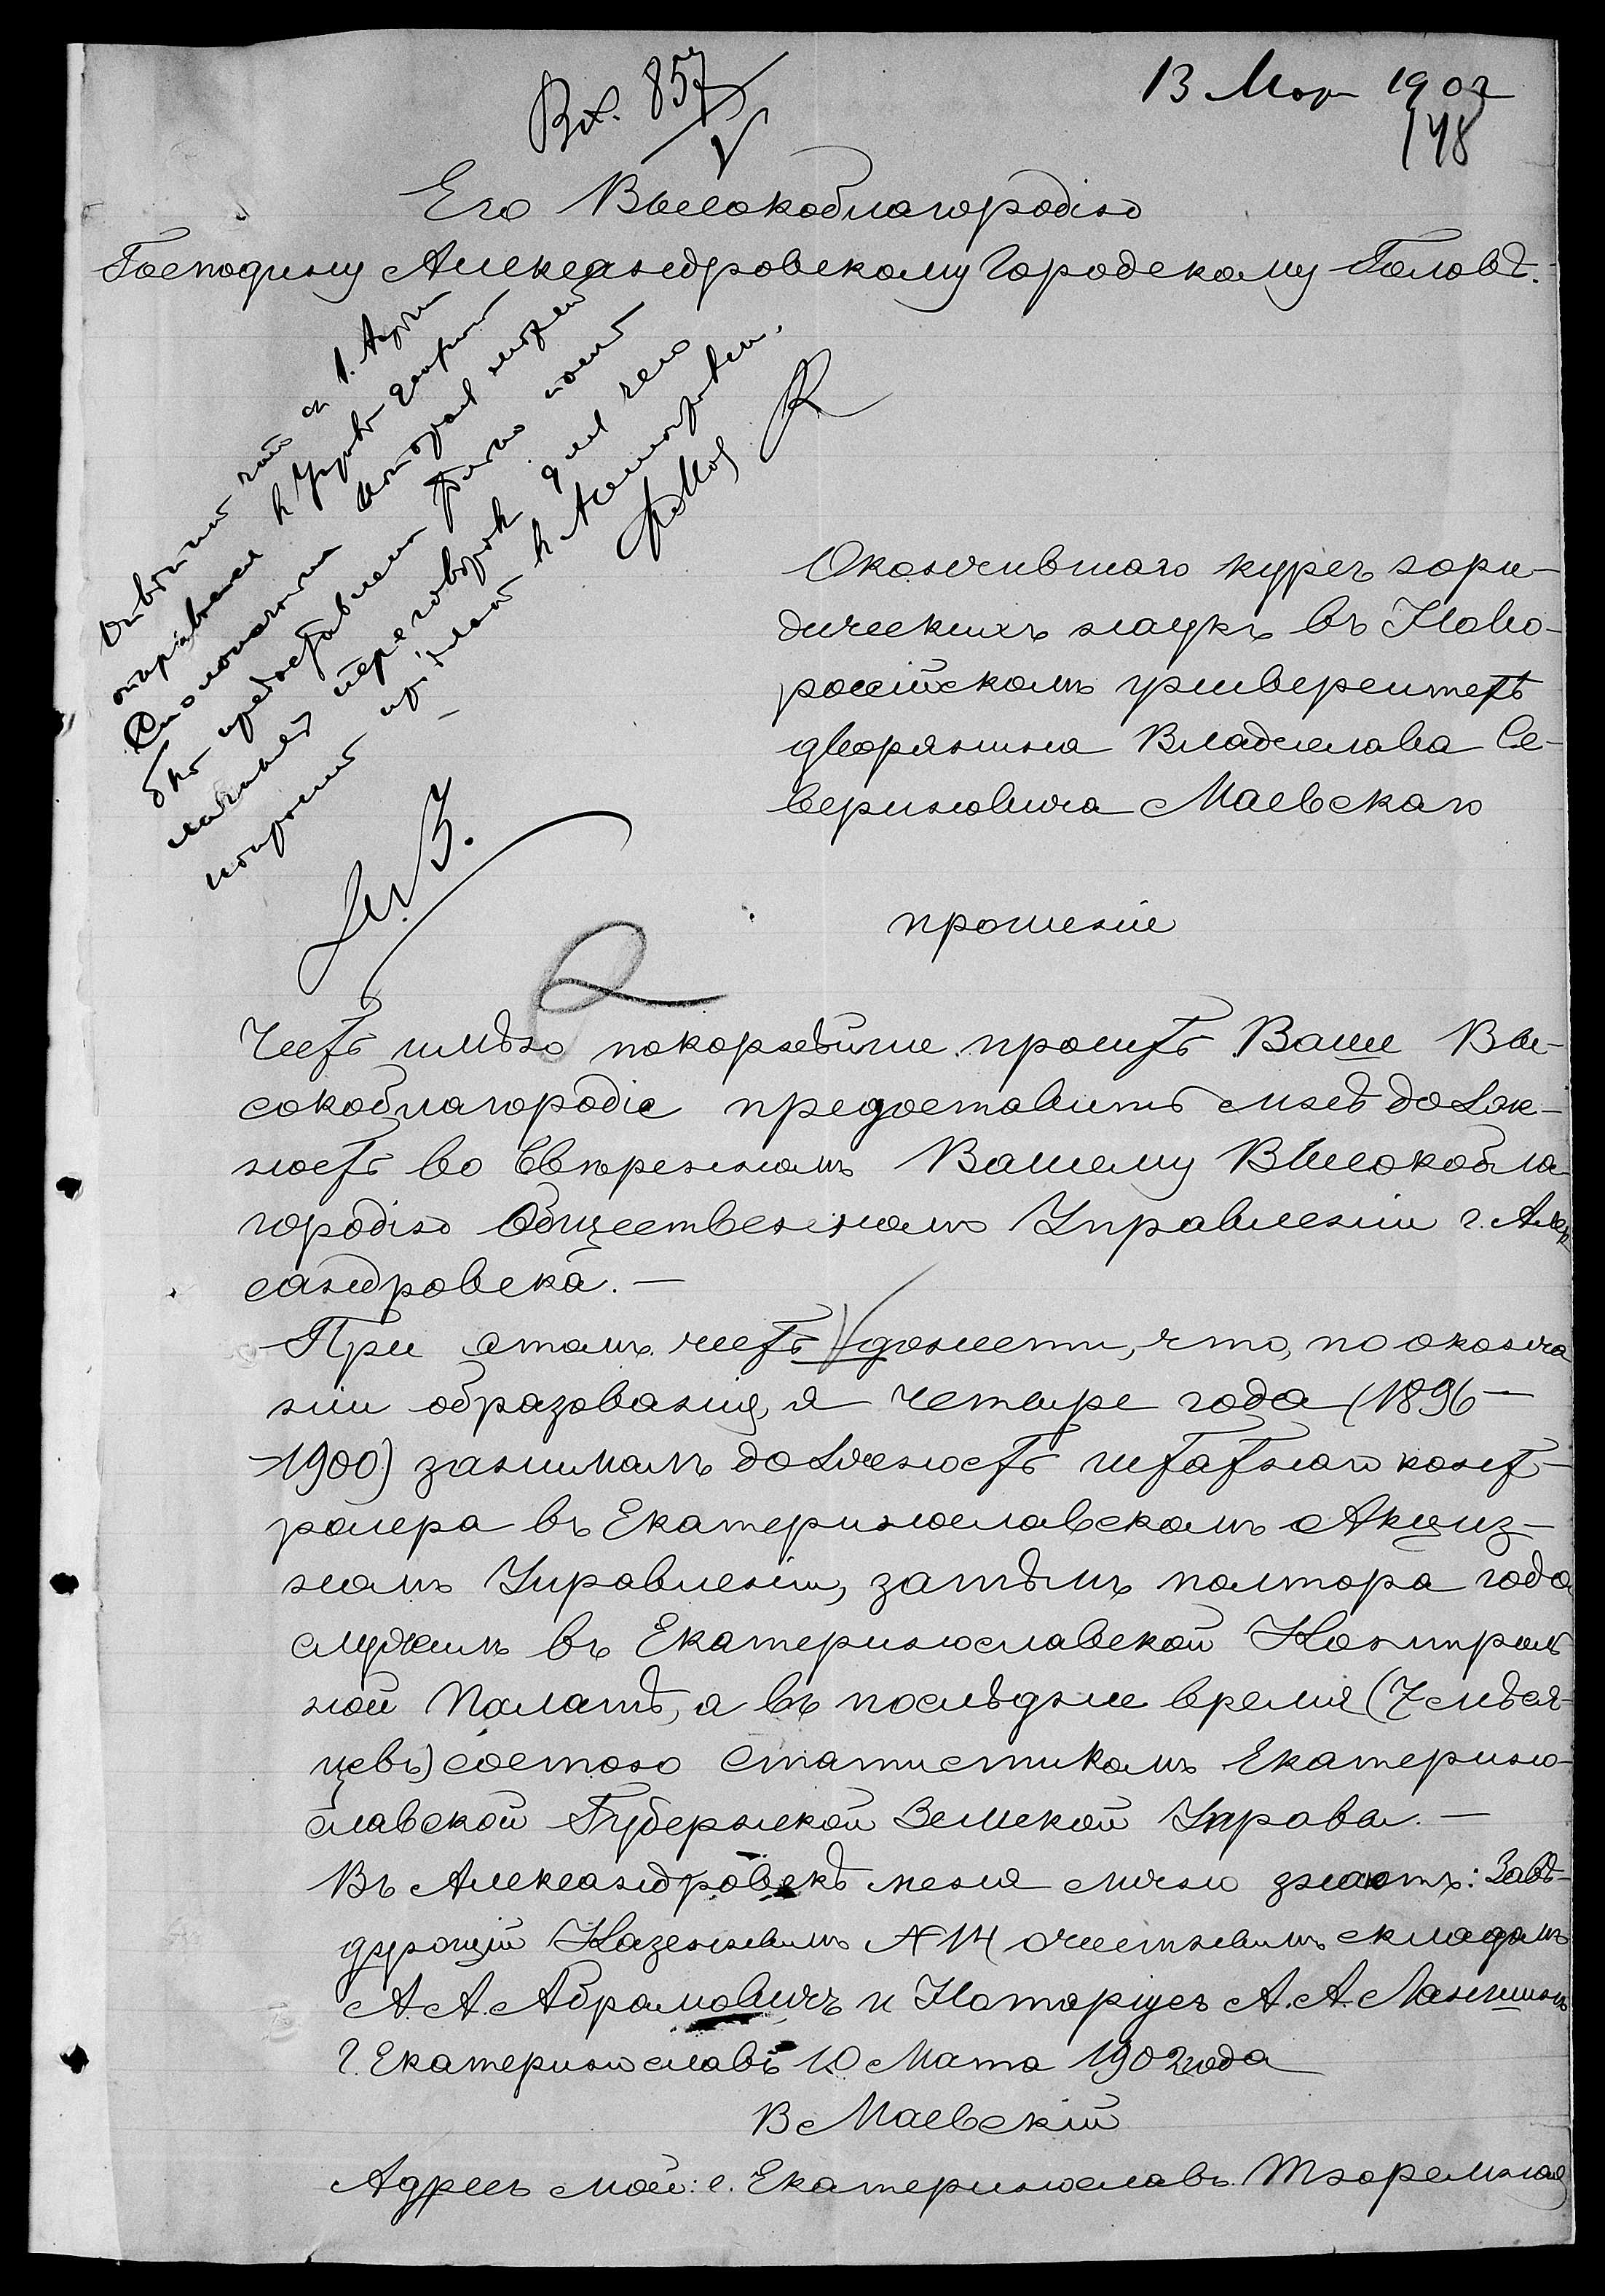 Вх. 857
13 Мар 1902
148
Его Высокоблагородію
Господину Александровскому Городскому Головѣ.
Отвѣтить что съ 1. Апр
открывается въ Управѣ
Столоначальника которая может
быть предоставлена
личныхъ переговоровъ для чего
попросить пріѣхать въ Александровскъ.
Окончившаго курсъ юри-
дическихъ наукъ въ Ново-
россійскомъ университетѣ
дворянина Владислава Се-
вериновича Маевскаго
прошеніе
Честь имѣю покорнѣйше просить Ваше Вы-
сокоблагородіе предоставить мнѣ долж-
ность во ввѣренномъ Вашему Высокобла-
городію Общественномъ Управленіи г. Алек-
сандровска. —
При этомъ честь донести, что, по оконча
ніи образованія, я четыре года (1896 —
—1900) занималъ должность штатнаго конт-
ролера въ Екатеринославскомъ Акциз-
номъ Управленіи, затѣмъ полтора года
служилъ въ Екатеринославской Контроль
ной Палатѣ, а въ послѣднее время (7 мѣся-
цевъ) состою статистикомъ Екатерино-
славской Губернской Земской Управы. —
Въ Александровскѣ меня лично знаютъ: Завѣ-
дующій Казеннымъ № 14 очистнымъ складомъ
А. А. Абрамовичъ и Нотаріусъ А. А. Ланшинъ
г. Екатеринославъ 10 Марта 1902 года
В Маевскій
Адресъ мой: г. Екатеринославъ. Тюремная